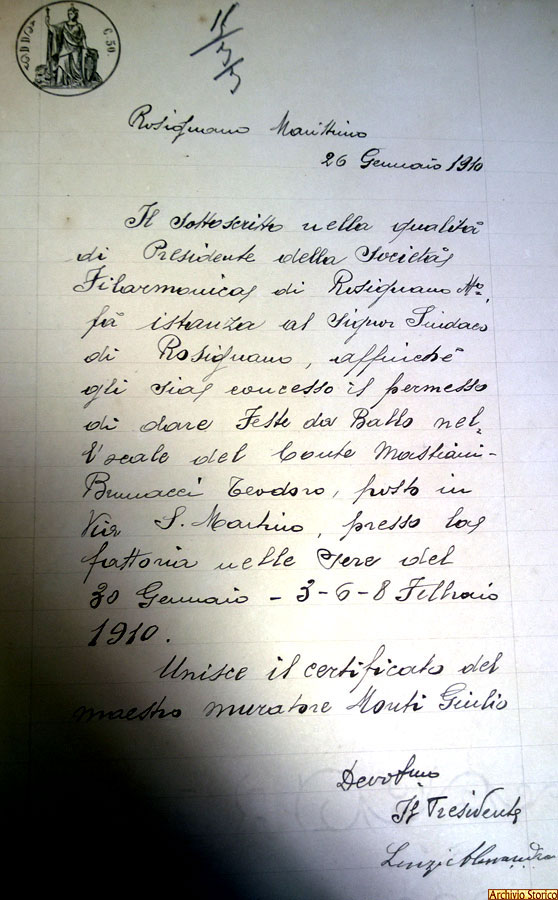 C. 50.
Rosignano Marittimo
26 Gennaio 1910
Il sottoscritto nella qualità
di Presidente della Società
Filarmonica di Rosignano Mo.
fà istanza al Signor Sindaco
di Rosignano, affinchè
gli sia concesso il permesso
di dare Feste da Ballo nel-
l'ocale del Conte Mastiani-
Brunacci Teodoro, posto in
Via S. Martino, presso la
fattoria nelle sere del
30 Gennaio - 3-6-8 Febbraio
1910.
Unisce il certificato del
maestro muratore Monti Giulio
Devotmo
Il Presidente
Lenzi Alessandro
Archivio Storico